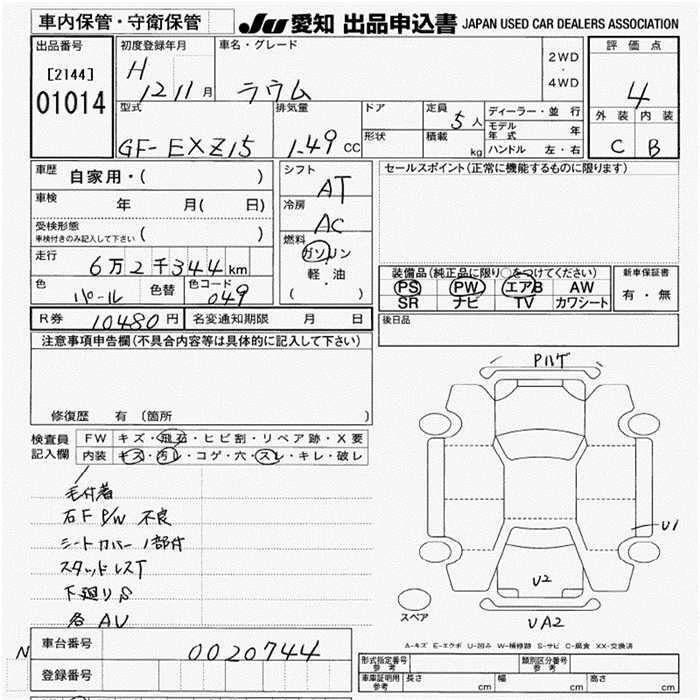 車内保管・守衛保管
JU 愛知 出品申込書 JAPAN USED CAR DEALERS ASSOCIATION
出品番号
[2144]
01014
初度登録年月
H
12 11 月
車名・グレード
ラウム
2WD
・
4WD
評価点
4
外装 内装
C B
型式
GF-EXZ15
排気量
1.49 CC
ドア
形状
定員
5 人
積載
kg
ディーラー・並行
モデル年式 年
ハンドル 左・右
車歴
自家用・( )
車検
年 月( 日)
受検形態
車検付きのみ記入して下さい ( )
走行
6万2千344 km
色
パール
色替
色コード
049
シフト
AT
冷房
AC
燃料
ガソリン
軽・油
( )
セールスポイント(正常に機能するものに限ります)
装備品(純正品に限り○をつけてください)
PS PW エアB AW
SR ナビ TV カワシート
新車保証書
有・無
R券 10480 円 名変通知期限 月 日
後日品
注意事項申告欄(不具合内容等は具体的に記入して下さい)
修復歴 有 (箇所 )
検査員
記入欄
FW キズ・飛石・ヒビ割・リペア跡・X要
内装 キズ・汚レ・コゲ・穴・スレ・キレ・破レ
毛付着
石F P/W 不良
シートカバー1部付
スタッドレスT
下廻りS
各AU
Pハゲ
U1
U2
UA2
スペア
A-キズ E-エクボ U-凹み W-補修跡 S-サビ C-腐食 XX-交換済
N
車台番号 0020744
登録番号
形式指定番号
参考
類別区分番号
参考
車庫証明用
参考
長さ cm 幅 cm 高さ cm